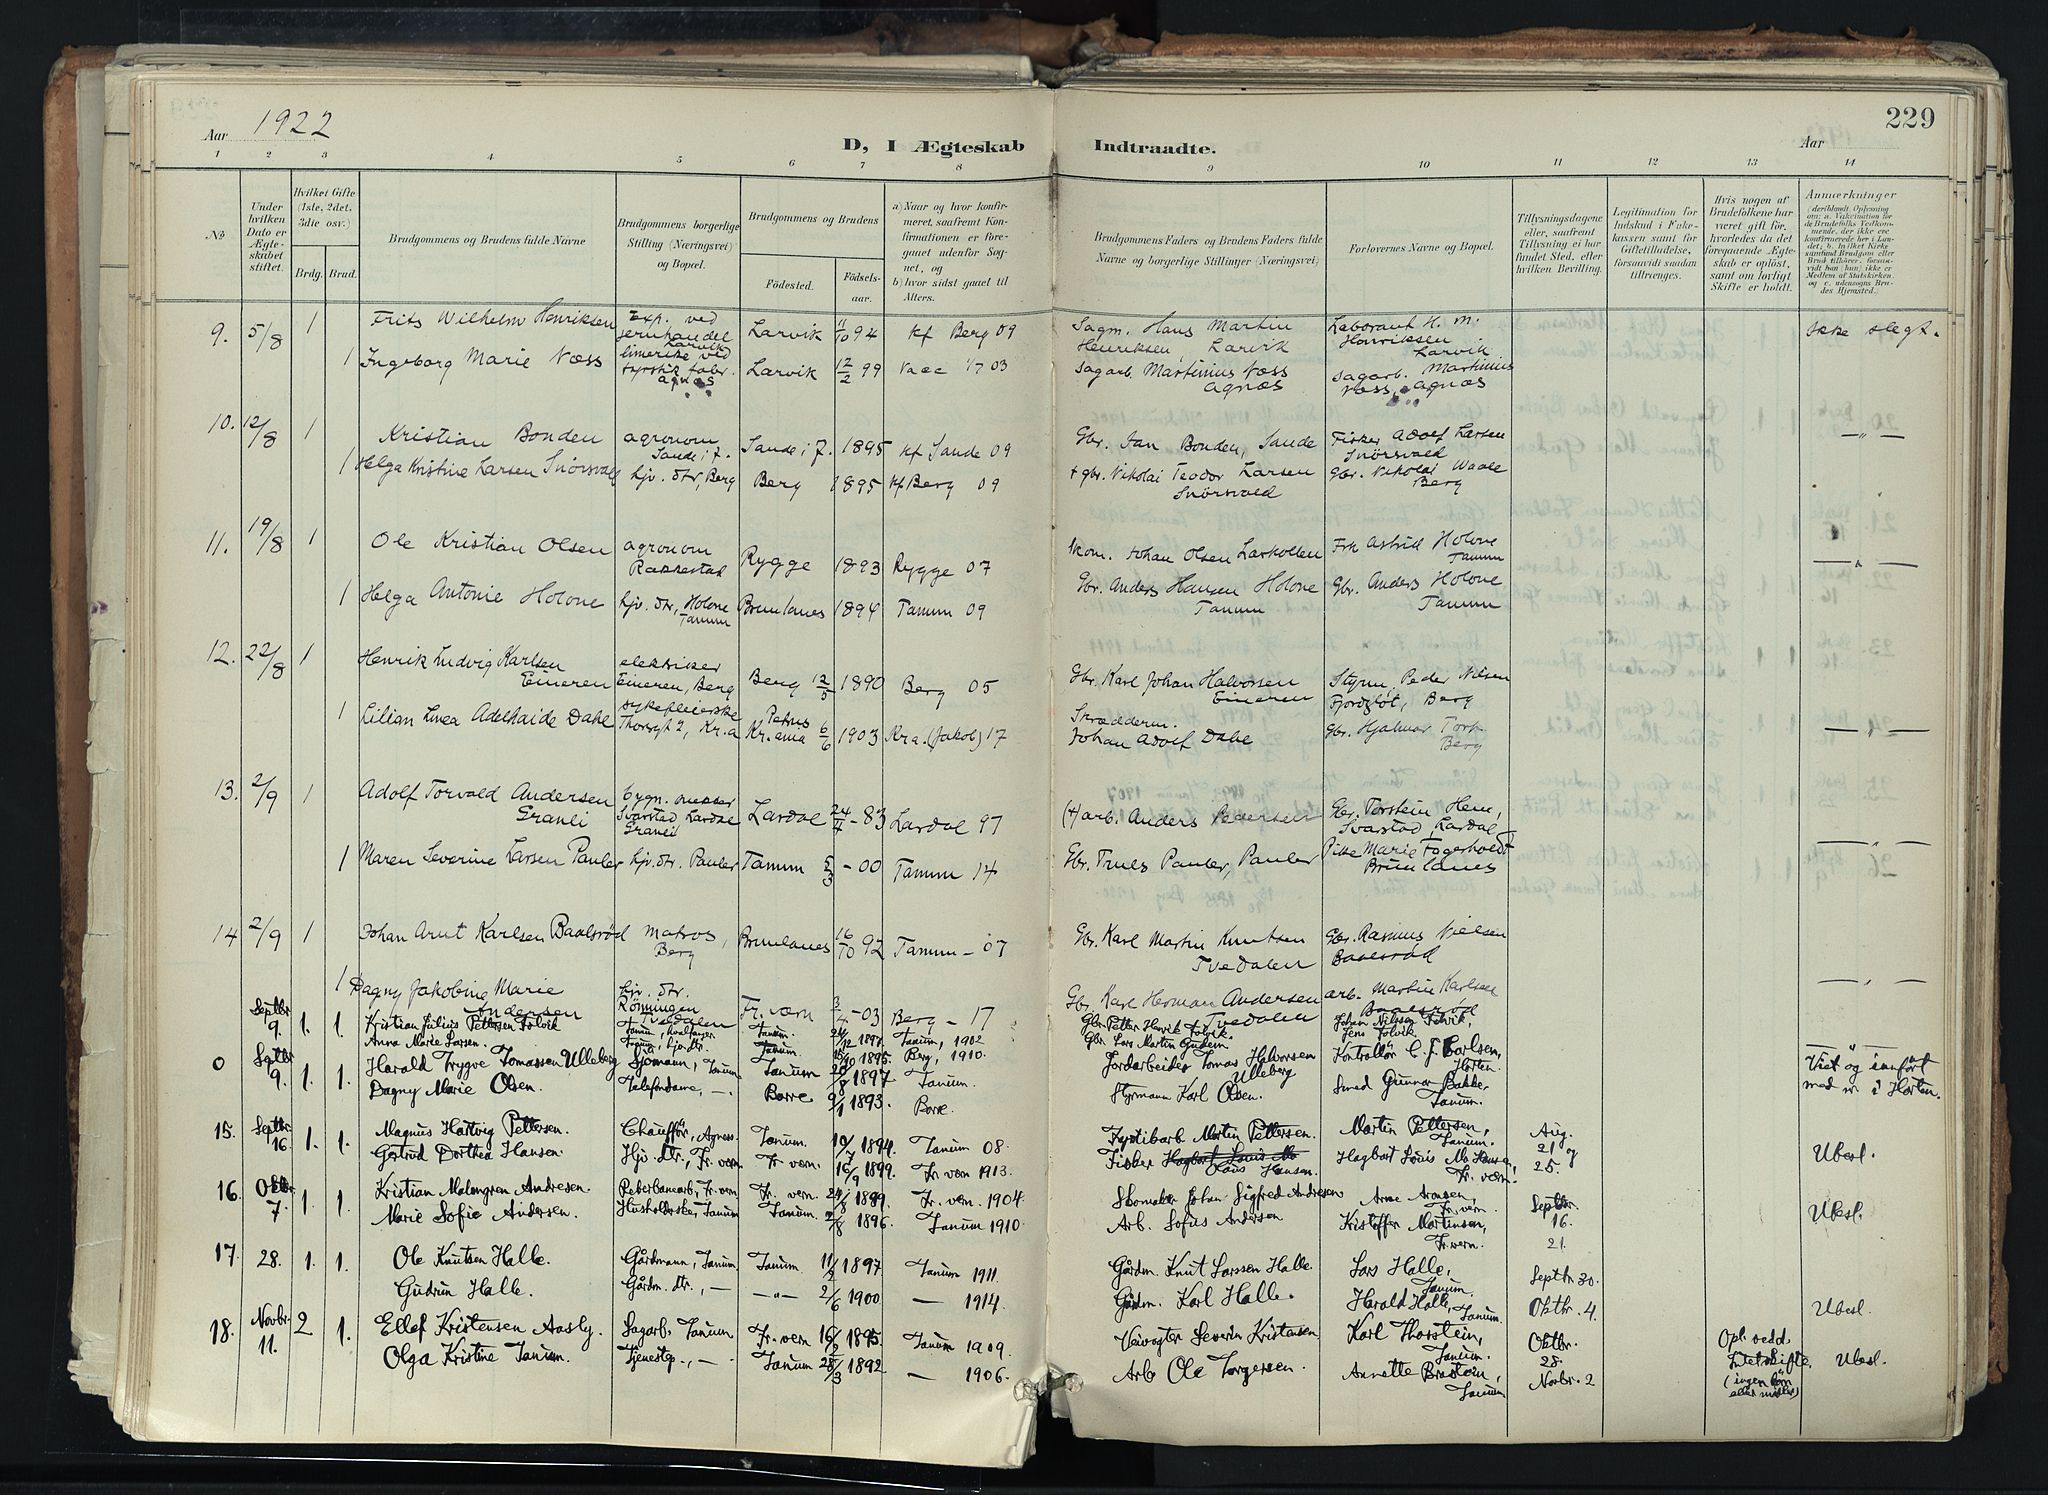 229
Aar 1922
D, I Ægteskab Indtraadte.
Aar
1 2 3 4 5 6 7 8 9 10 11 12 13 14
No
Under hvilken Dato er Ægteskabet stiftet.
Hvilket Gifte (1ste, 2det, 3die osv.)
Brdg. Brud.
Brudgommens og Brudens fulde Navne
Brudgommens borgerlige Stilling (Næringsvei) og Bopæl.
Brudgommens og Brudens
Fødested. Fødselsaar.
a) Naar og hvor konfirmeret, saafremt Konfirmationen er foregaaet udenfor Sognet, og
b) hvor sidst gaaet til Alters.
Brudgommens Faders og Brudens Faders fulde Navne og borgerlige Stillinger (Næringsvei)
Forlovernes Navne og Bopæl.
Tillysningsdagene eller, saafremt Tillysning ei har fundet Sted, efter hvilken Bevilling.
Legitimation for Indskud i Enkekassen samt for Giftetilladelse, forsaavidt saadan tiltrænges.
Hvis nogen af Brudefolkene har været gift før, hvorledes da det foregaaende Ægteskab er opløst, samt om lovligt Skifte er holdt.
Anmærkninger
9. 5/8 1 Frits Wilhelm Henriksen Exp. ved jernhandel Larvik Larvik 11/10 94 kf Berg 09 Sagm. Hans Martin Henriksen, Larvik Laborant H. M. Henriksen Larvik Ikke slegt.
1 Ingeborg Marie Næss limerske ved fyrstik fabr. Agnæs Larvik 12/2 99 Vacc 1/7 03 Sagarb. Martinius Næss Agnæs Sagarb. Martinius Næss, Agnæs
10. 12/8 1 Kristian Bonden agronom Sande i J. Sande i J. 1895 kf Sande 09 Gbr. Jan Bonden, Sande Fisker Adolf Larsen Snørsvald — „ —
1 Helga Kristine Larsen Snørsvald hjv. dtr, Berg Berg 1895 kf Berg 09 + gbr. Nikolai Teodor Larsen Snørsvald Gbr. Nikolai Waale Berg
11. 19/8 1 Ole Kristian Olsen agronom Rakkestad Rygge 1893 Rygge 07 Skom. Johan Olsen Larkollen Frk Astrid Holone Tanum — „ —
1 Helga Antonie Holone hjv. dtr, Holone Tanum Brunlanes 1894 Tanum 09 Gbr. Anders Hansen Holone Tanum Gbr. Anders Holone Tanum
12. 22/8 1 Henrik Ludvig Karlsen Eineren elektriker Eineren, Berg Berg 12/5 1890 Berg 05 Gbr. Karl Johan Halvorsen Eineren Styrm. Peder Nilsen Fjordgløt, Berg
1 Lilian Linea Adelhaide Dahl sykepleierske Thorsgt 2, Kr.a Petrus Kr.ania 6/6 1903 Kr.a. (Jakob) 17 Skrædderm. Johan Adolf Dahl Gbr. Hjalmar Torp Berg — „ —
13. 2/9 1 Adolf Torvald Andersen Granli bygn. snekker Svarstad Lardal Granli Lardal 24/4 - 83 Lardal 97 (+) arb. Anders Pedersen Gbr. Torstein Hem, Svarstad, Lardal
1 Maren Severine Larsen Pauler hjv. dtr. Pauler Tanum 5/3 - 00 Tanum 14 Gbr. Truls Pauler, Pauler Pike Marie Fogerholdt Brunlanes — „ —
14 2/9 1 Johan Arnt Karlsen Baalsrød matros, Berg Brunlanes 16/10 92 Tanum - 07 Gbr. Karl Martin Knutsen Tvedalen Gbr. Rasmus Nielsen Baalsrød
1 Dagny Jakobine Marie Andersen hjv. dtr. Rønningen Tvedalen Fr.værn 3/4 - 03 Berg - 17 Gbr. Karl Herman Andersen Tvedalen arb. Martin Karlsen Baalsrød — „ —
Septbr 9. 1. 1. Kristian Julius Pettersen Folvik Tanum, hvalfanger Tanum. Tanum, 1902 Gbr. Petter Henrik Folvik Johan Nilssen Folvik,
Anna Marie Larsen. Tanum, hjv. dtr. Tanum. 1895. Berg, 1910. Gbr. Lars Martin Gudem. Jens Folvik — „ —
0 Septbr 9. 1. 1. Harald Trygve Tomassen Ulleberg Sjømann, Tanum Tanum 20/8 1897 Tanum. Jordarbeider Tomas Halvorsen Ulleberg Kontrollør C. J. Carlsen, Horten. Viet og innført med nr. i Horten.
Dagny Marie Olsen. Telefondame, — Borre 9/1 1893. Borre. Styrmann Karl Olsen. Smed Gunnar Bakke Tanum.
15. Septbr 16. 1. 1. Magnus Hartvig Pettersen. Chauffør, Agnæs Tanum. 10/7 1894. Tanum 08. Fyrstikarb Martin Pettersen. Martin Pettersen, Tanum. Aug. 21 og
Gertrud Dorthea Hansen. Hjv. dtr., Fr.værn Fr. værn. 16/9 1899. Fr. værn 1913. Fisker Hagbart Louis Mo Hansen. Hagbart Louis Mo Hansen, Fr. værn. 25. Ubesl.
16. Oktbr 7. 1. 1. Kristian Malmgren Andresen. Reberbanearb, Fr. værn Fr. værn. 1899. Fr. værn 1904. Skomaker Johan Sigfred Andresen Arne Aronsen, Fr. værn. Septbr.
Marie Sofie Andersen. Husholderske, Tanum Tanum. 2/8 1896. Tanum 1910. Arb. Sofus Andersen Kristoffer Martinsen, Fr. værn. 16. 21. Ubesl.
17. 28. 1. 1. Ole Knutsen Halle. Gårdmann, Tanum. Tanum 11/2 1897 Tanum 1911. Gårdm. Knut Larssen Halle. Lars Halle, Tanum. Septbr 30.
Gudrun Halle. Gårdm. dtr., — — „ — 2/6 1900 — 1914. Gårdm. Karl Halle. Harald Halle, Tanum. Oktbr. 4 Ubesl.
18. Novbr. 11. 2 1. Ellef Kristensen Aasly. Sagarb, Tanum Fr. værn 16/2 1895 Tanum 1909. Veivogter Severin Kristensen. Karl Thorstein, Tanum. Oktbr. 28. Opl. vedd. Intet skifte. (ingen børn eller midler) Ubesl.
Olga Kristine Tanum. Tjenestep., — Tanum 28/3 1892 — 1906. Arb Ole Torgersen. Annette Tanum Novbr. 2